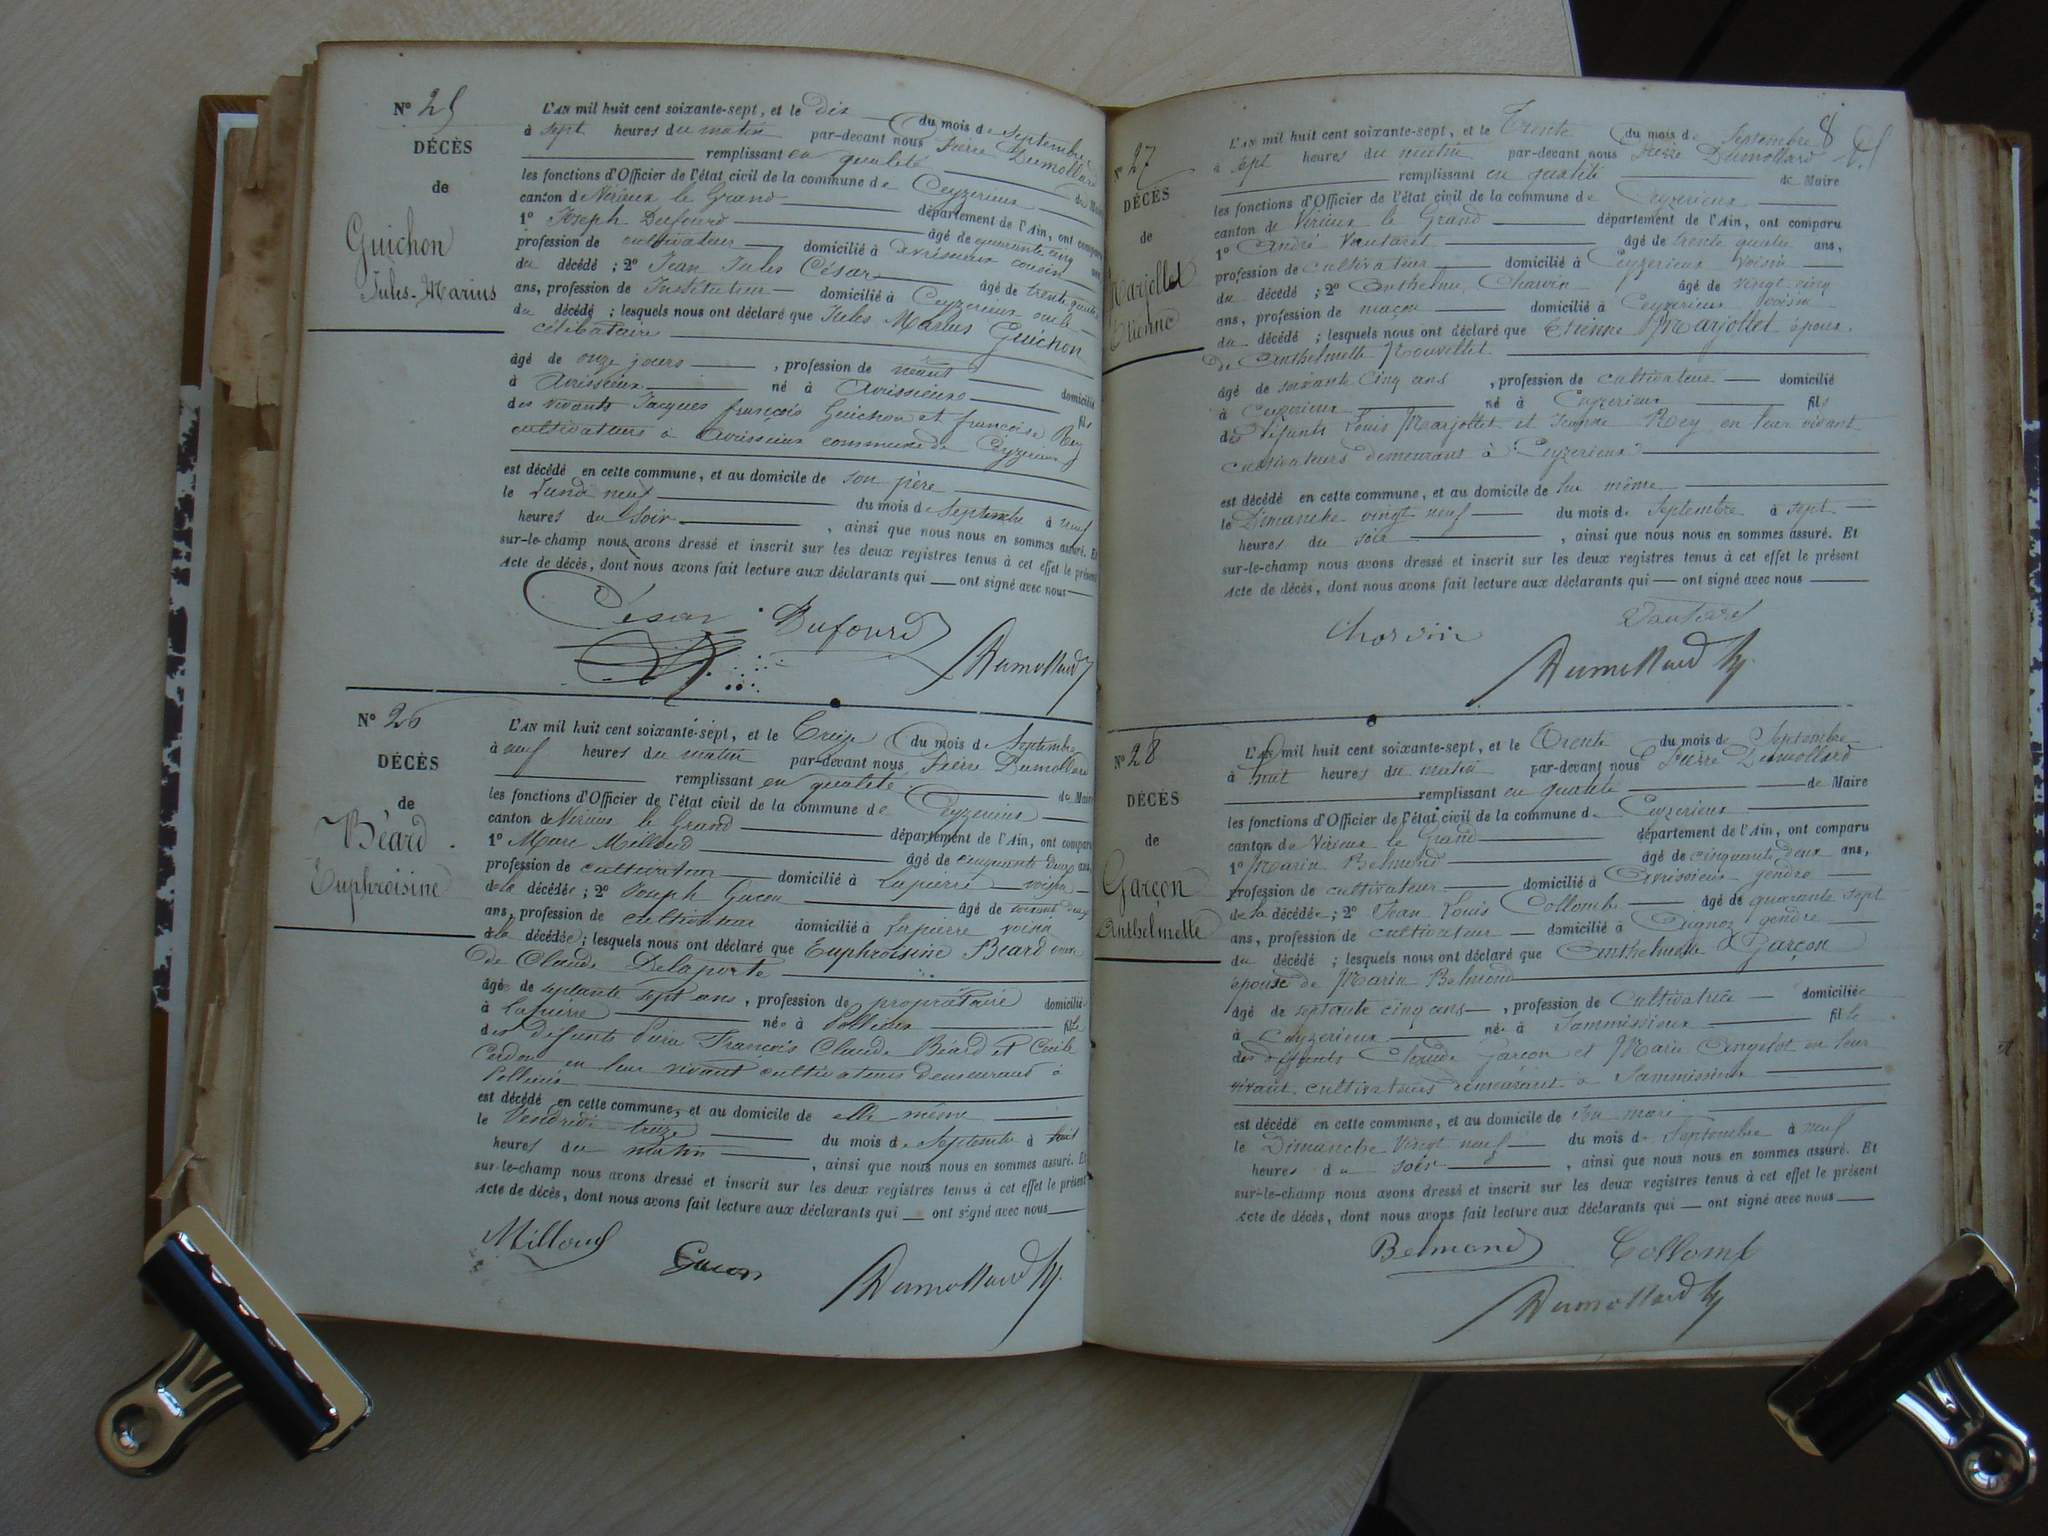 N° 25
DÉCÈS
de
Guichon
Jules-Marius
L'AN mil huit cent soixante-sept, et le dix du mois de Septembre
à sept heures du matin par-devant nous Pierre Dumollard
remplissant en qualité de Maire
les fonctions d'Officier de l'état civil de la commune de Ceyzerieux
canton de Virieux le Grand département de l'Ain, ont comparu
1° Joseph Dufourd âgé de quarante cinq ans
profession de cultivateur domicilié à Avrissieux cousin
du décédé ; 2° Jean Jules César âgé de trente quatre
ans, profession de Instituteur domicilié à Ceyzerieux oncle
du décédé ; lesquels nous ont déclaré que Jules Marius Guichon
célibataire
âgé de onze jours , profession de néant domicilié
à Avrissieux né à Avrissieux fils
des vivants Jacques françois Guichon et françoise Rey
cultivateurs à Avrissieux commune de Ceyzerieux
est décédé en cette commune, et au domicile de son père
le Lundi neuf du mois de Septembre à neuf
heures du soir , ainsi que nous nous en sommes assuré. Et
sur-le-champ nous avons dressé et inscrit sur les deux registres tenus à cet effet le présent
Acte de décès, dont nous avons fait lecture aux déclarants qui ont signé avec nous
César Dufourd
Dumollard
N° 26
DÉCÈS
de
Béard
Euphroisine
L'AN mil huit cent soixante-sept, et le Treize du mois de Septembre
à neuf heures du matin par-devant nous Pierre Dumollard
remplissant en qualité de Maire
les fonctions d'Officier de l'état civil de la commune de Ceyzerieux
canton de Virieux le Grand département de l'Ain, ont comparu
1° Marc Milloud âgé de cinquante deux ans,
profession de cultivateur domicilié à Lapierre voisin
de la décédée ; 2° Joseph Gucon âgé de
ans, profession de cultivateur domicilié à Lapierre voisin
de la décédée ; lesquels nous ont déclaré que Euphroisine Béard veuve
de Claude Delaporte
âgée de septante sept ans, profession de propriétaire domiciliée
à Lapierre née à Pollieu fille
des défunts François Claude Béard et Cécile
Cerdon en leur vivant cultivateurs demeurant à
Pollieu
est décédé en cette commune, et au domicile de elle même
le Vendredi treize du mois de Septembre à huit
heures du matin , ainsi que nous nous en sommes assuré. Et
sur-le-champ nous avons dressé et inscrit sur les deux registres tenus à cet effet le présent
Acte de décès, dont nous avons fait lecture aux déclarants qui ont signé avec nous
Milloud Gucon Dumollard
8
N° 27
DÉCÈS
de
Marjollet
Etienne
L'AN mil huit cent soixante-sept, et le Trente du mois de Septembre
à sept heures du matin par-devant nous Pierre Dumollard
remplissant en qualité de Maire
les fonctions d'Officier de l'état civil de la commune de Ceyzerieux
canton de Virieux le Grand département de l'Ain, ont comparu
1° André Vautaret âgé de trente quatre ans,
profession de cultivateur domicilié à Ceyzerieux voisin
du décédé ; 2° Anthelme Charvin âgé de vingt cinq
ans, profession de maçon domicilié à Ceyzerieux voisin
du décédé ; lesquels nous ont déclaré que Etienne Marjollet époux
de Anthelmette Nouvellet
âgé de soixante cinq ans , profession de cultivateur domicilié
à Ceyzerieux né à Ceyzerieux fils
des défunts Louis Marjollet et Rey en leur vivant
cultivateurs demeurant à Ceyzerieux
est décédé en cette commune, et au domicile de lui même
le Dimanche vingt neuf du mois de Septembre à sept
heures du soir , ainsi que nous nous en sommes assuré. Et
sur-le-champ nous avons dressé et inscrit sur les deux registres tenus à cet effet le présent
Acte de décès, dont nous avons fait lecture aux déclarants qui ont signé avec nous
Charvin Vautaret
Dumollard
N° 28
DÉCÈS
de
Garçon
Anthelmette
L'AN mil huit cent soixante-sept, et le Trente du mois de Septembre
à huit heures du matin par-devant nous Pierre Dumollard
remplissant en qualité de Maire
les fonctions d'Officier de l'état civil de la commune de Ceyzerieux
canton de Virieux le Grand département de l'Ain, ont comparu
1° Marin Belmond âgé de cinquante deux ans,
profession de cultivateur domicilié à Avrissieux gendre
de la décédée ; 2° Jean Louis Collomb âgé de quarante sept
ans, profession de cultivateur domicilié à gendre
du décédé ; lesquels nous ont déclaré que Anthelmette Garçon
épouse de Marin Belmond
âgé de septante cinq ans , profession de Cultivatrice domiciliée
à Ceyzerieux née à Sammissieux fille
des défunts Claude Garçon et Marie en leur
vivant cultivateurs demeurant à Sammissieux
est décédé en cette commune, et au domicile de son mari
le Dimanche vingt neuf du mois de Septembre à neuf
heures du soir , ainsi que nous nous en sommes assuré. Et
sur-le-champ nous avons dressé et inscrit sur les deux registres tenus à cet effet le présent
Acte de décès, dont nous avons fait lecture aux déclarants qui ont signé avec nous
Belmond Collomb
Dumollard